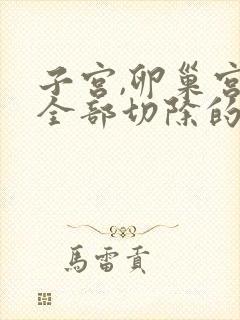 子宫,卵巢宫
全部切除的
馬雷貢